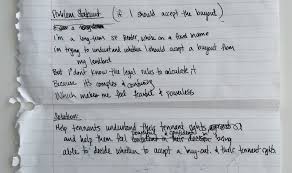 Problem Statement (if I should accept the buyout)
I'm a long-term SF Renter, while on a fixed income
I'm trying to understand whether I should accept a buyout from
my landlord
But I don't know the legal rules to calculate it
Because it's complex & confusing
Which makes me feel fearful & powerless
Solution:
Help tennants understand their tennant rights
and help them feel confident in their decision being
able to decide whether to accept a buy-out & their tennant rights.